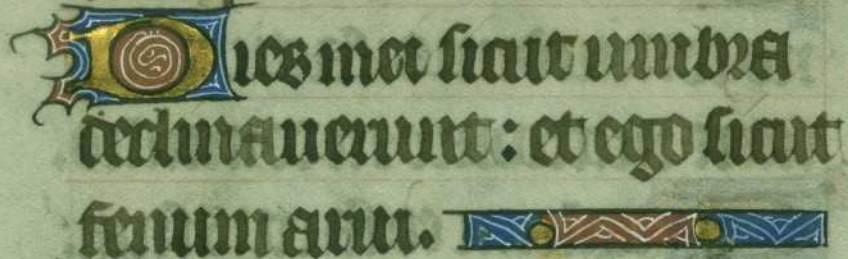 Dies mei sicut umbra
declinauerunt : et ego sicut
fenum arui.